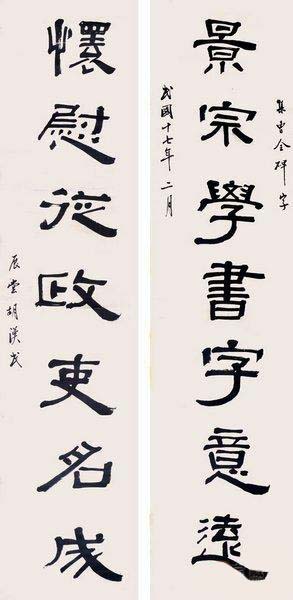 集曹全碑字
景宗學書字意遠
民國十七年二月
懷慰從政吏名成
展堂胡漢民